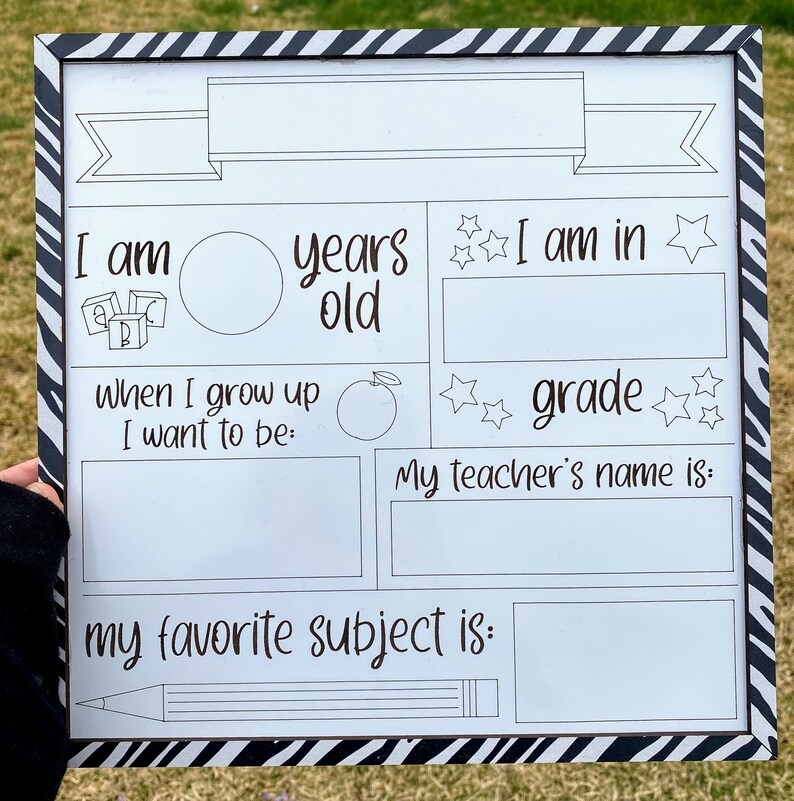 I am years old
a B C
I am in
grade
When I grow up
I want to be:
My teacher's name is:
my favorite subject is: